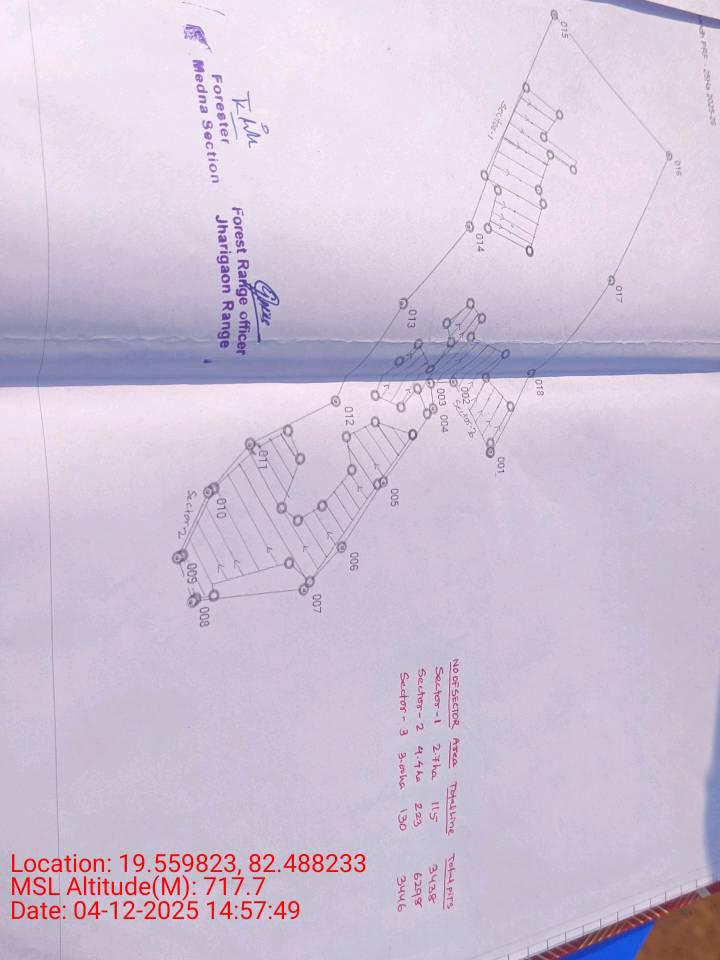 PRF - 25Ha 2025-26
015
016
Sector-1
014
017
013
018
002
003
004
Sector-3
001
012
005
011
006
010
Sector 2
009
007
008
Forester
Medna Section
Forest Range officer
Jharigaon Range
NO OF SECTOR Area Total line Total pits
Sector-1 2.7ha 115 3438
Sector-2 4.4ha 223 6298
Sector-3 3.00ha 130 3446
Location: 19.559823, 82.488233
MSL Altitude(M): 717.7
Date: 04-12-2025 14:57:49